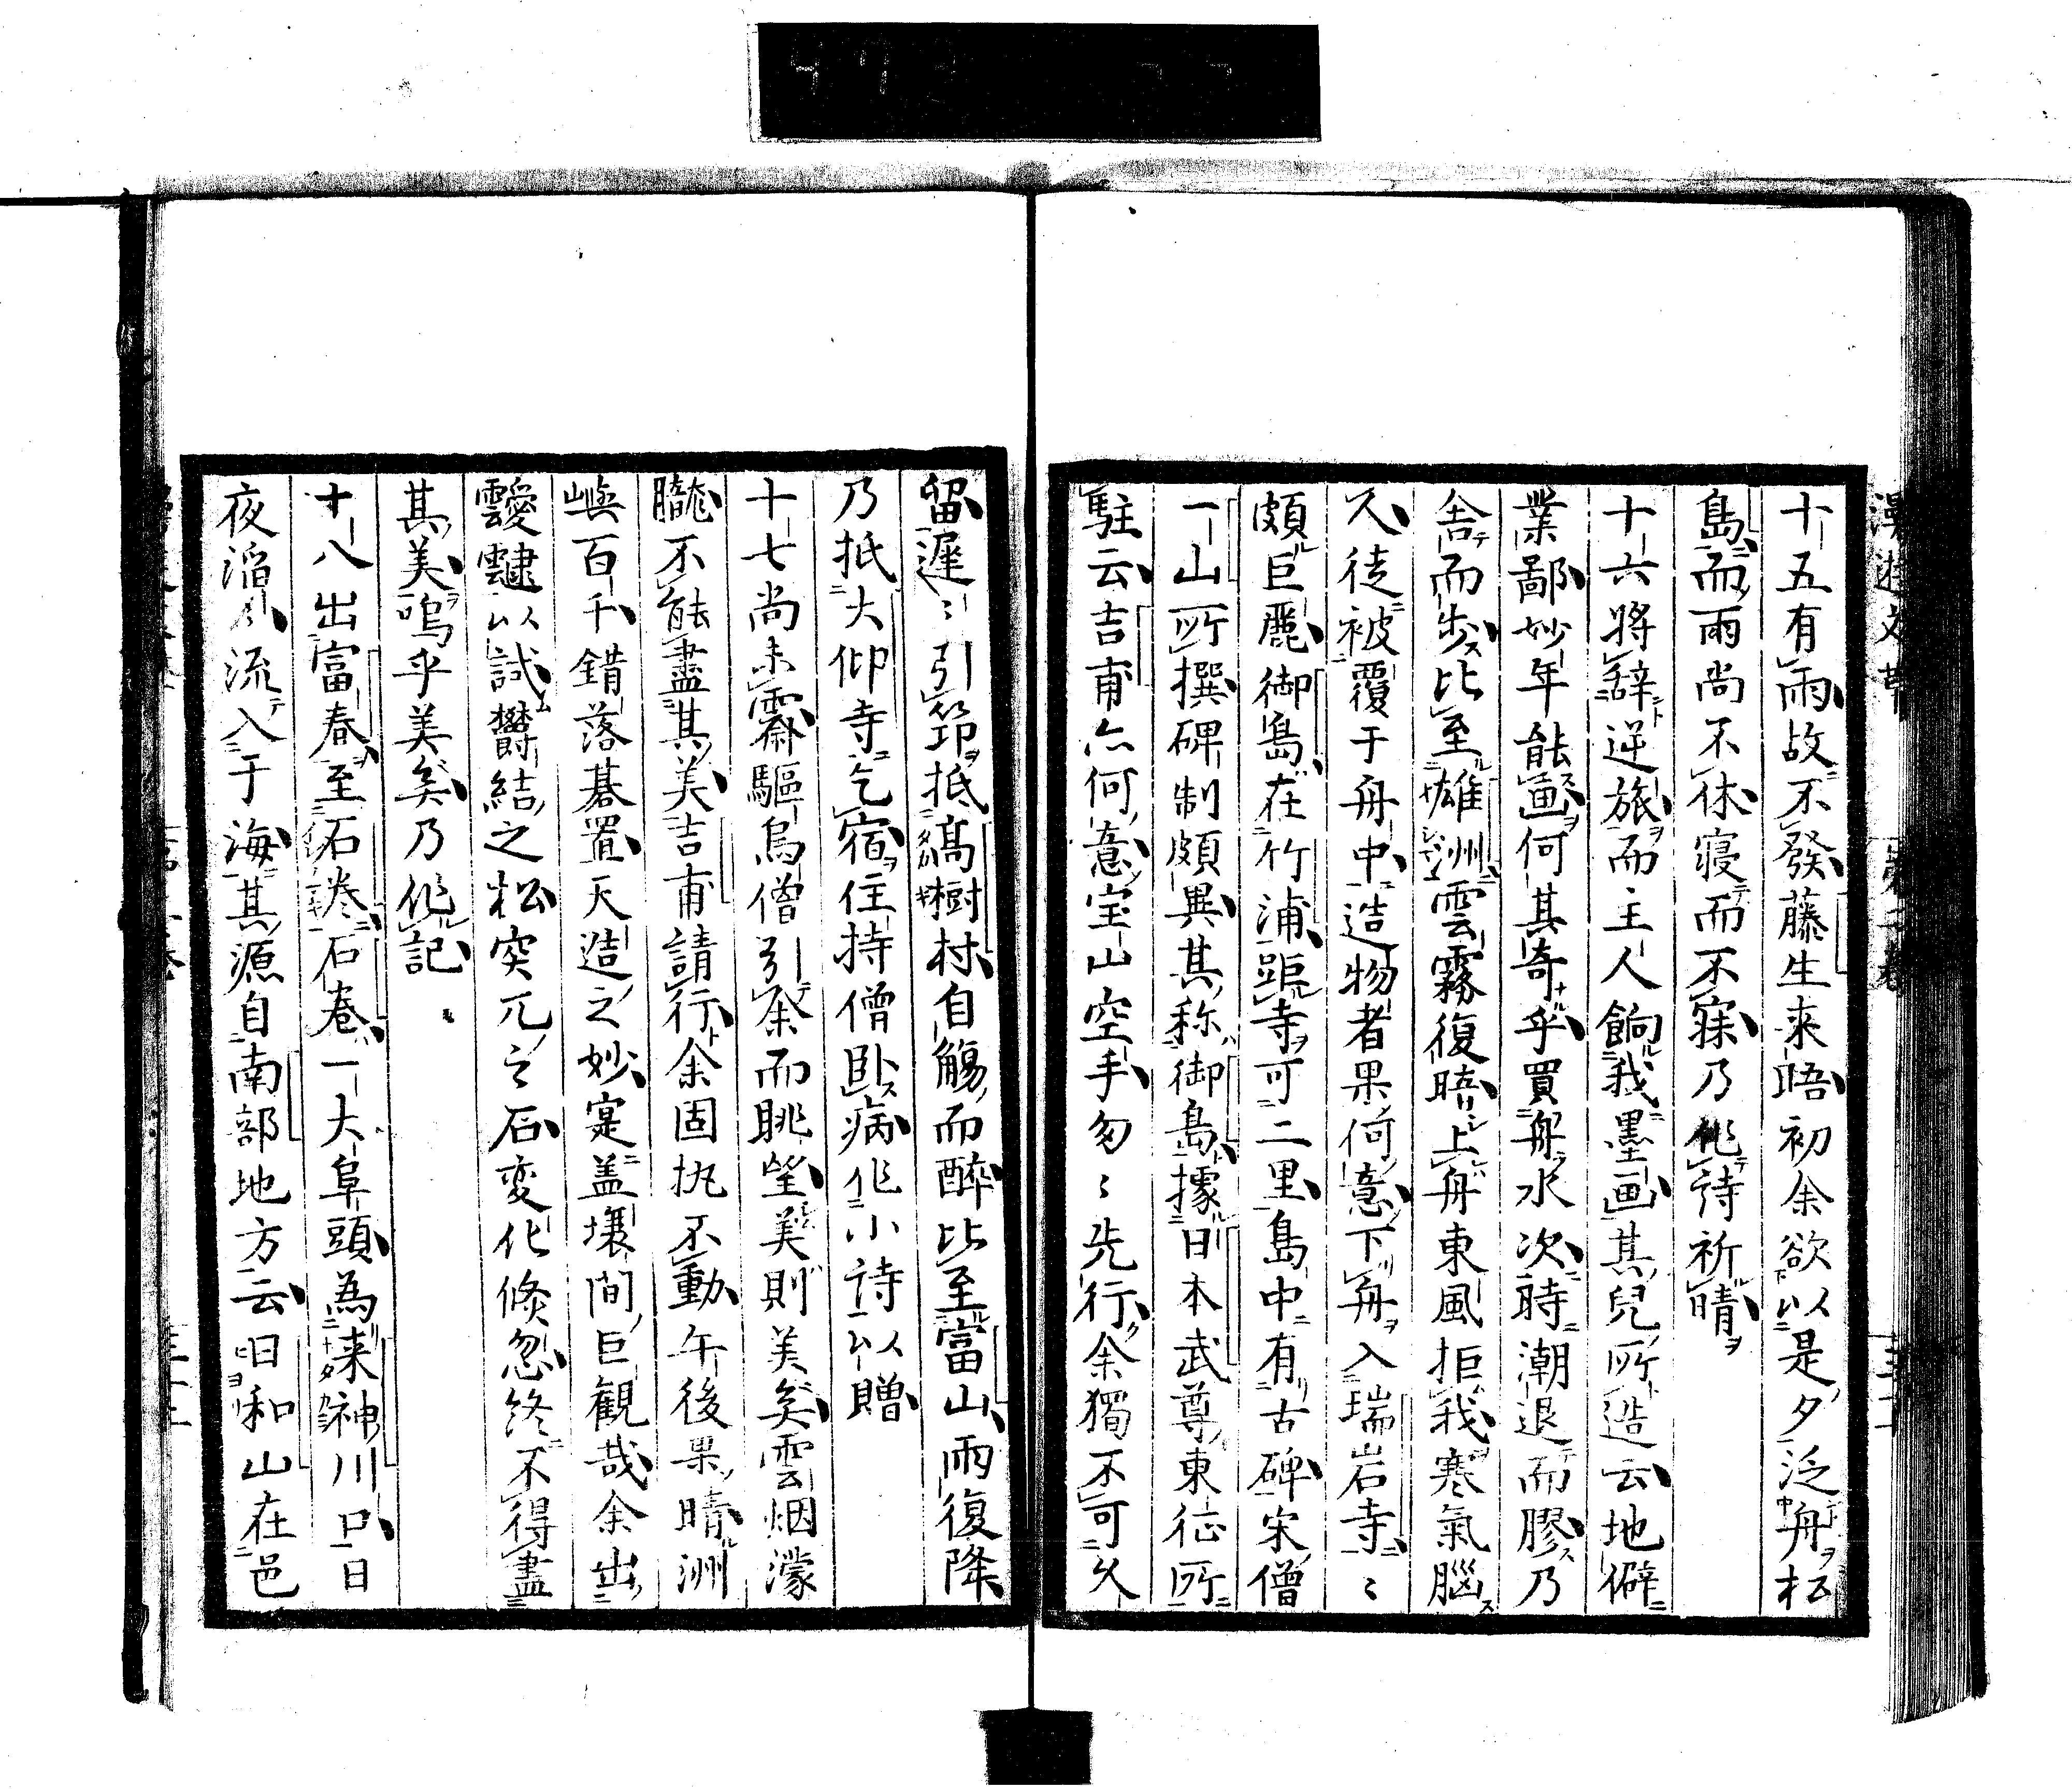 十五有雨故不發藤生来晤初余欲以是夕泛舟松
島而雨尚不休寝而不寐乃作詩祈晴
十六將辭逆旅而主人餉我墨画其兒所造云地僻
業鄙妙年能画何其奇乎買舟水次時潮退而膠乃
舎而歩比至雄洲雲霧復晴上舟東風拒我寒氣腦
人徒被覆于舟中造物者果何意下舟入瑞岩寺〻
頗巨麗御島在竹浦距寺可二里島中有古碑宋僧
一山所撰碑制頗異其称御島據日本武尊東征所
駐云吉甫亦何意宝山空手匆〻先行余獨不可久
留遅〻引筇抵高樹村自觴而醉比至富山雨復降
乃抵大仰寺乞宿住持僧臥病作小詩以贈
十七尚未霽驅烏僧引余而眺望美則美矣雲烟濛
朧不能盡其美吉甫請行余固執不動午後果晴洲
嶼百千錯落碁置天造之妙寔盖壤間巨観哉余出
靉靆以試欝結之松突兀之石変化倏忽終不得盡
其美嗚乎美矣乃作記
十八出富春至石巻石巻一大阜頭為来神川口日
夜滔〻流入于海其源自南部地方云日和山在邑